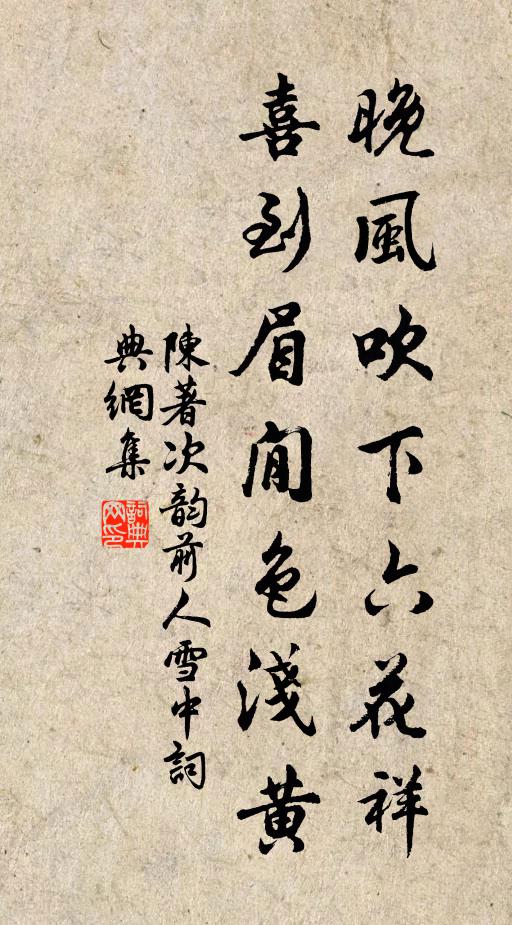 晚風吹下六花祥
喜到眉間色淺黃
陳著次韵前人雪中詞
典網集
詞典網印